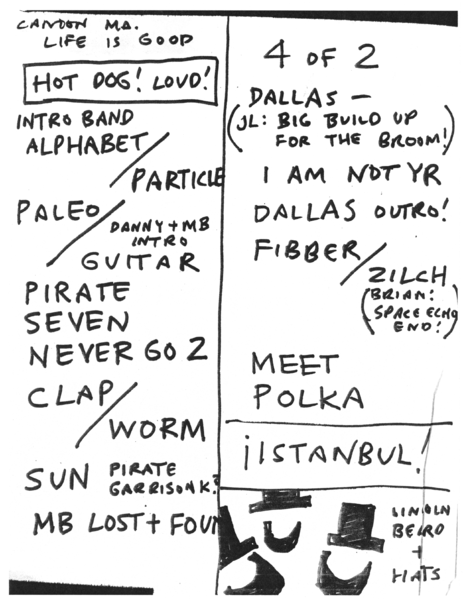 CANDEN MA.
LIFE IS GOOD
HOT DOG! LOUD!
INTRO BAND
ALPHABET/
PARTICLE
PALEO/
DANNY + MB
INTRO
GUITAR
PIRATE
SEVEN
NEVER GO 2
CLAP/
WORM
SUN PIRATE
GARRISON K?
MB LOST + FOUN
4 OF 2
DALLAS —
(JL: BIG BUILD UP
FOR THE BROOM!)
I AM NOT YR
DALLAS OUTRO!
FIBBER/
ZILCH
(BRIAN!
SPACE ECHO
END!)
MEET
POLKA
¡ISTANBUL!
LINCOLN
BEARD
+
HATS